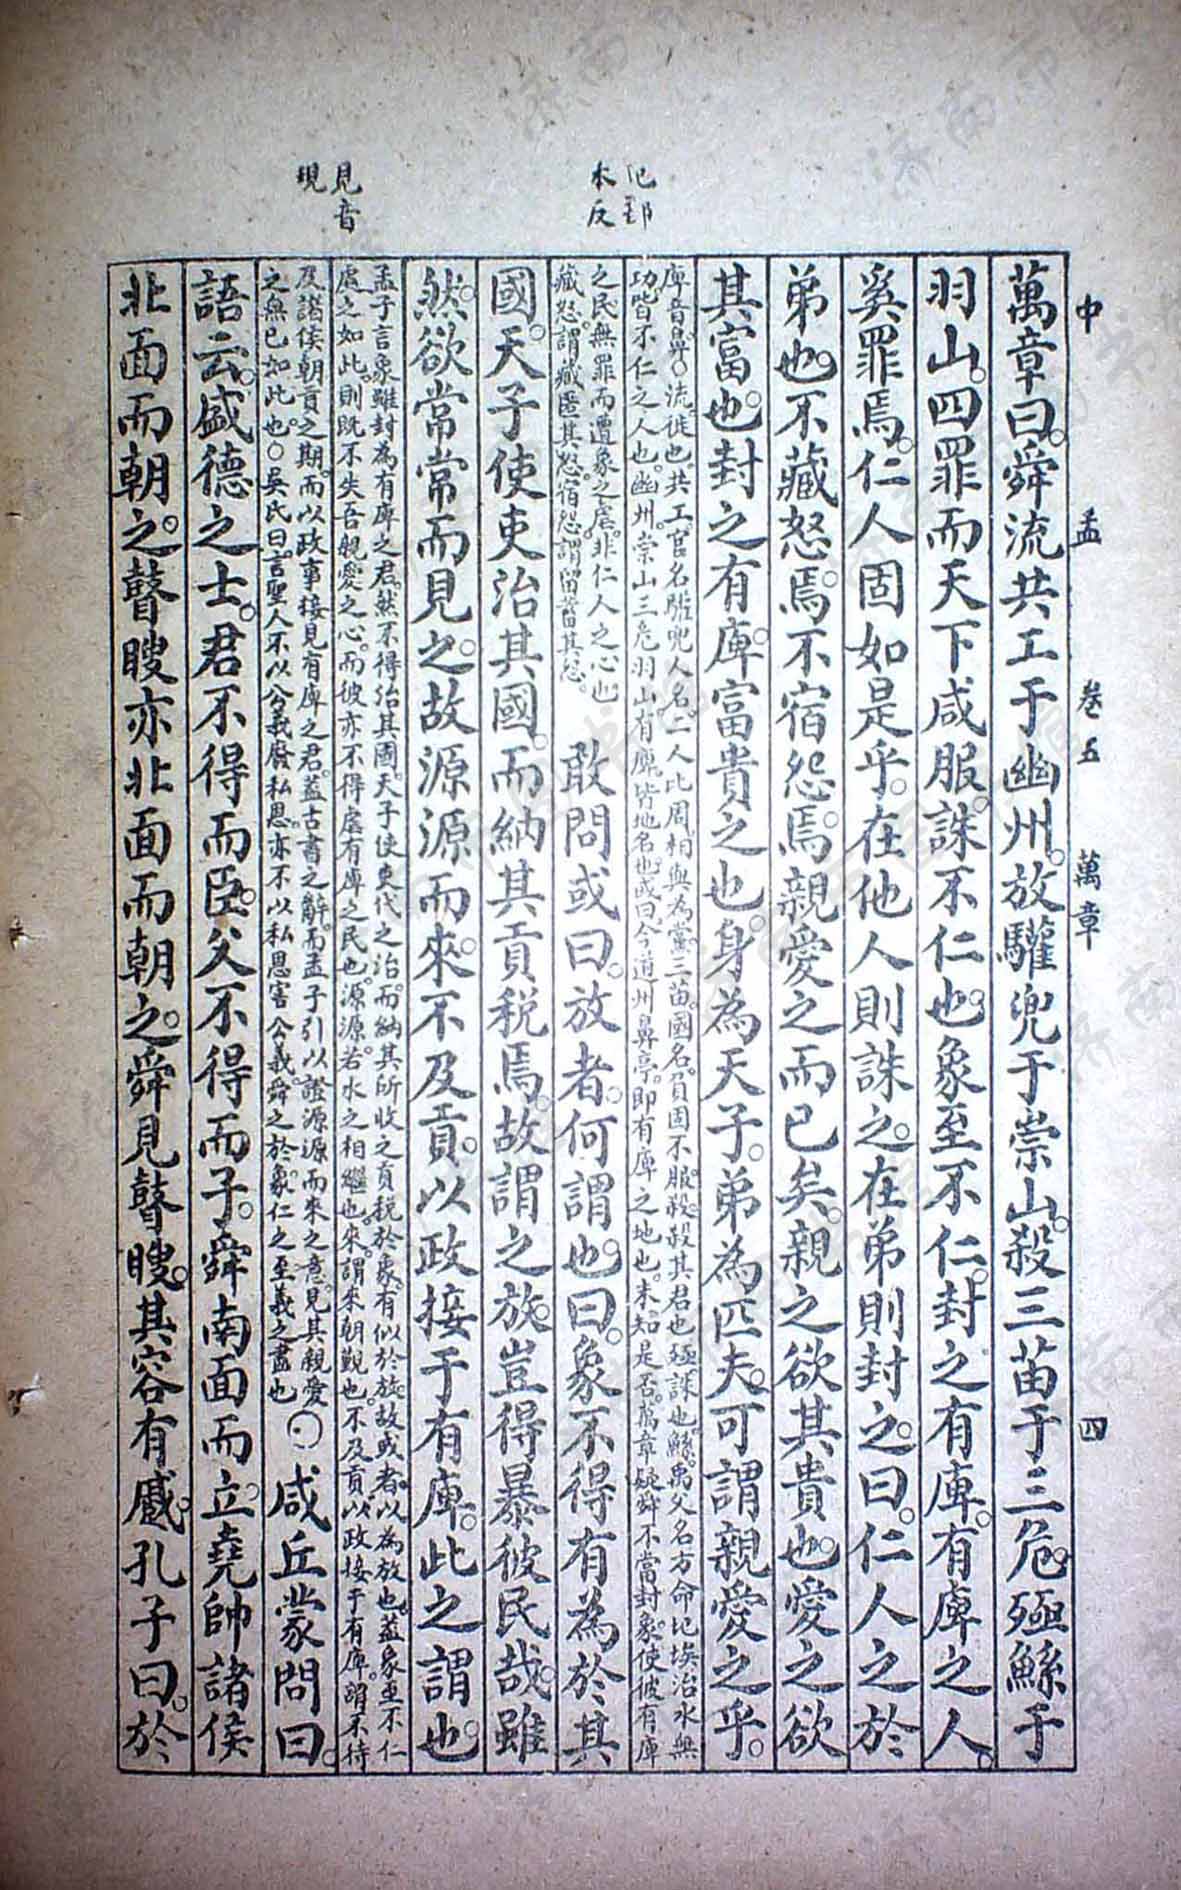 中孟 卷五 萬章 四
圮部
本反
見音
現
萬章曰。舜流共工于幽州。放驩兜于崇山。殺三苗于三危。殛鯀于
羽山。四罪而天下咸服。誅不仁也。象至不仁。封之有庳。有庳之人。
奚罪焉。仁人固如是乎。在他人則誅之。在弟則封之。曰。仁人之於
弟也。不藏怒焉。不宿怨焉。親愛之而已矣。親之欲其貴也。愛之欲
其富也。封之有庳。富貴之也。身為天子。弟為匹夫。可謂親愛之乎。
庳音鼻。○流。徙也。共工。官名。驩兜人名。二人比周。相與為黨。三苗。國名。負固不服。殺。殺其君也。殛。誅也。鯀。禹父名。方命圮族。治水無
功。皆不仁之人也。幽州。崇山三危羽山有庳。皆地名也。或曰今道州鼻亭。即有庳之地也。未知是否。萬章疑舜不當封象。使彼有庳
之民。無罪而遭象之虐。非仁人之心也
藏怒。謂藏匿其怒。宿怨。謂留蓄其怨。
敢問或曰。放者。何謂也。曰。象不得有為於其
國。天子使吏治其國。而納其貢税焉。故謂之放。豈得暴彼民哉。雖
然。欲常常而見之。故源源而來。不及貢。以政接于有庳。此之謂也。
孟子言象雖封為有庳之君。然不得治其國。天子使吏代之治。而納其所收之貢税於象。有似於放。故或者。以為放也。蓋象至不仁
處之如此。則既不失吾親愛之心。而彼亦不得虐有庳之民也。源源。若水之相繼也。來。謂來朝覲也。不及貢以政接于有庳。謂不待
及諸侯朝貢之期。而以政事接見有庳之君。蓋古書之辭。而孟子引以證源源而來之意。見其親愛
之無已如此也。○吳氏曰。言聖人不以公義廢私恩。亦不以私恩害公義。舜之於象。仁之至。義之盡也
○咸丘蒙問曰。
語云。盛德之士。君不得而臣。父不得而子。舜南面而立。堯帥諸侯
北面而朝之。瞽瞍亦北面而朝之。舜見瞽瞍。其容有蹙。孔子曰。於